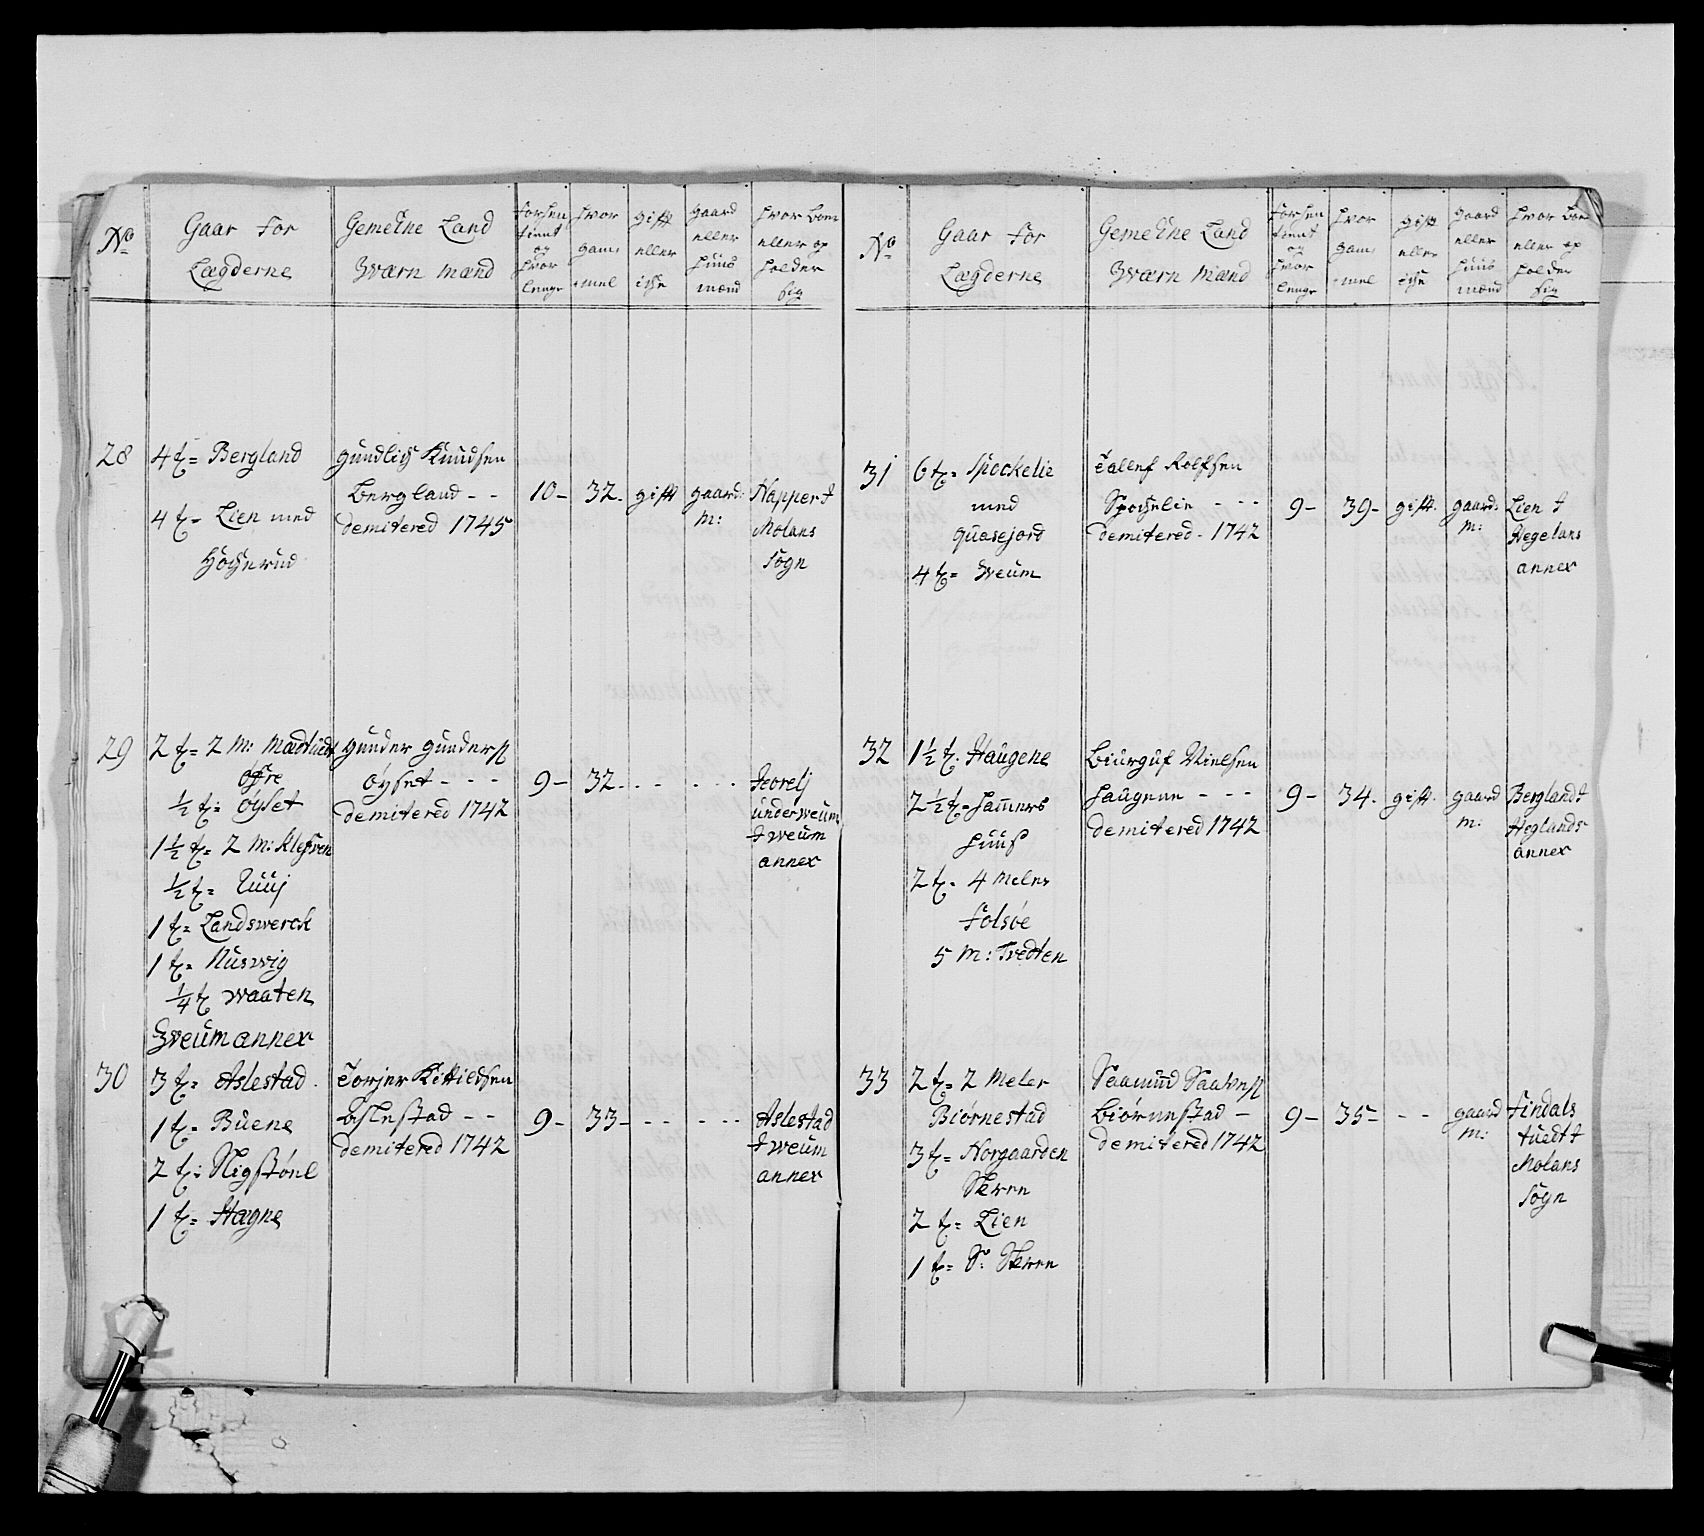 No
Gaar for
Lægderne
Gemeene Land
Zværn mænd
forhen
tient
og
hvor
lenge
hvor
gam
mel
gifft
eller
iche
gaard
eller
huus
mænd
hvor boer
eller op
holder
sig
28
4 t= Bergland
4 t= Lien med
Høgnerud
gundlich Knudsen
Bergland - -
demitered 1745
10-
32-
gifft
gaard:
M:
Napper i
Molans
Sogn
29
2 t= 2 M:
øfre
½ t= øyset
1½ t= 2 M:
½ t=
1 t= Landswerck
1 t= Nuswig
¼ t waaten
Zweum annex
gunder gunders
øyset - - -
demitered 1742
9-
32-
- -
- - -
under weum
i weum
annex
30
3 t= Aslestad
1 t= Buene
2 t: Nigstønl
1 t= Hagne
Torjer Kittildsen
aslestad - -
demitered 1742
9-
33-
- -
- - -
Aslestad
i weum
annex
No
Gaar for
Lægderne
Gemeene Land
Zværn mænd
forhen
tient
og
hvor
lenge
hvor
gam
mel
gift
eller
iche
gaard
eller
huus
mænd
hvor boer
eller op
holder
sig
31
6 t= Spockelie
med
quasejord
4 t= Weum
Tallef Rolfsen
Spochelie - - -
demitered - 1742
9-
39-
gifft.
gaard:
M:
Lien i
Hegelans
annex
32
1½ t. Haugene
2½ t= hamers
huus
2 t= 4 Meler
folsøe
5 M: Tvedten
Biurguf Nielsen
haugene - - -
demitered 1742
9-
34.
gifft.
gaard
m:
Bergland i
Heglands
annex
33
2 t= 2 Meler
Biørnestad
3 t= Norgaarden
Skeren
2 t= Lien
1 t= S: Skeren
Saamund Saaves
Biørnestad -
demitered 1742
9-
35-
- -
gaard
M:
findals
tuedt i
Molans
Sogn